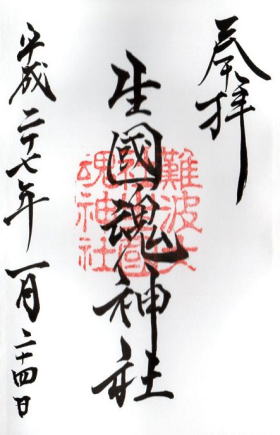 奉拝
生國魂神社
難波大
社生國
魂神社
平成二十七年一月二十四日